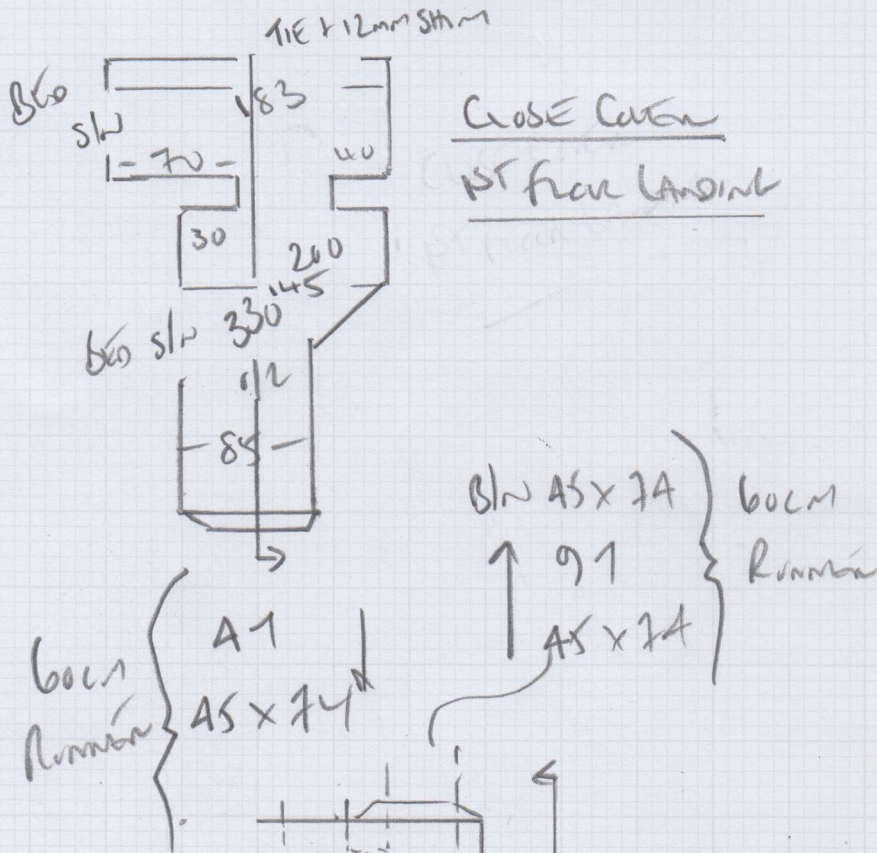 TIE + 12mm SHIM
BED
S/N
183
CLOSE COVER
1ST FLOOR LANDING
70
40
30
200
145
BED S/N
330
85
B/N 45 x 74
91
45 x 74
60cm
RUNNER
A1
45 x 74
60cm
RUNNER